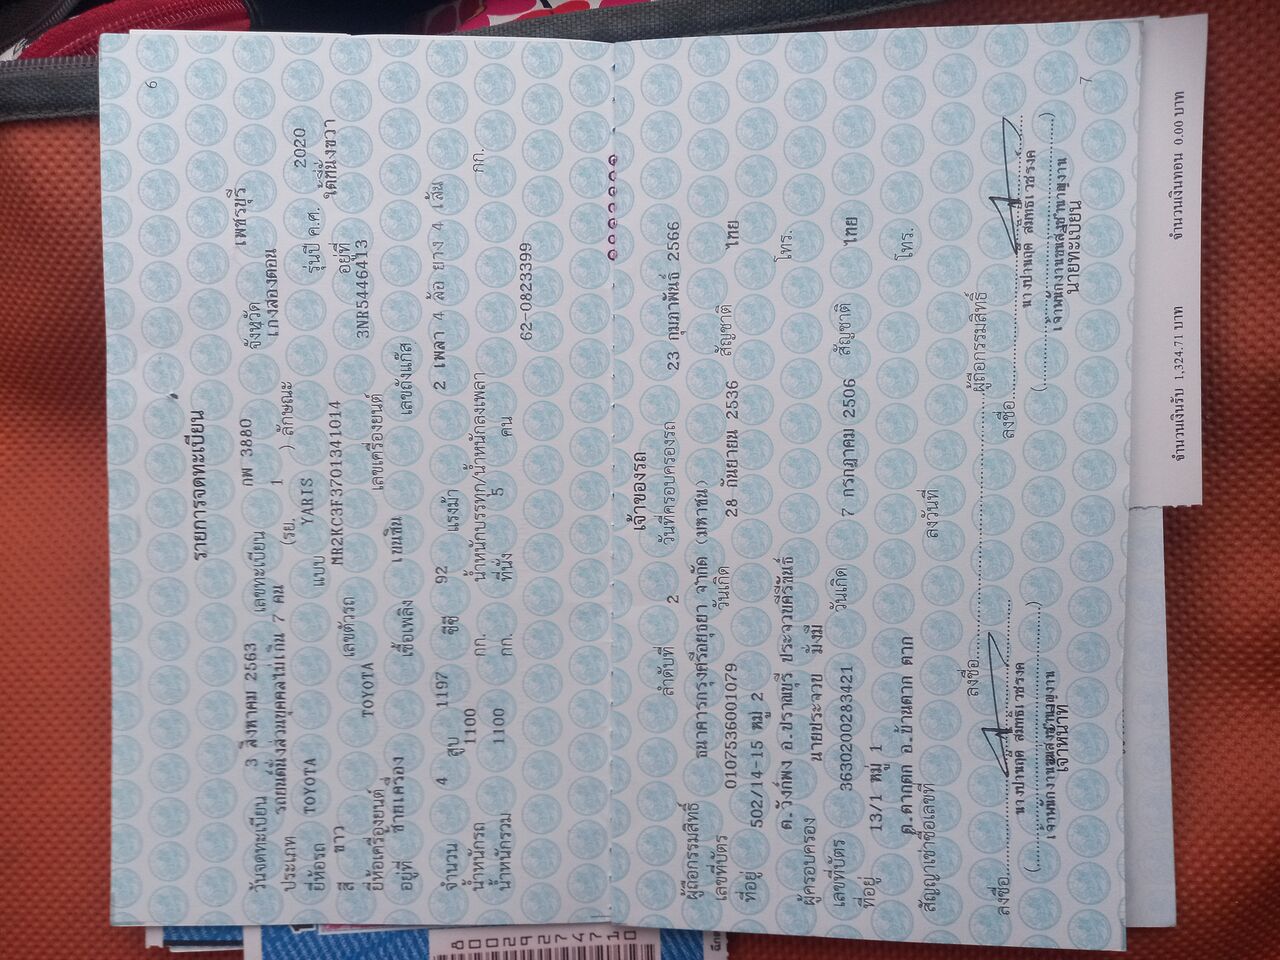 6
รายการจดทะเบียน
วันจดทะเบียน 3 สิงหาคม 2563 เลขทะเบียน กพ 3880 จังหวัด เพชรบุรี
ประเภท รถยนต์นั่งส่วนบุคคลไม่เกิน 7 คน (รย. 1 ) ลักษณะ เก๋งสองตอน
ยี่ห้อรถ TOYOTA แบบ YARIS รุ่นปี ค.ศ. 2020
สี ขาว เลขตัวรถ MR2KC3F3701341014 อยู่ที่ ใต้ที่นั่งขวา
ยี่ห้อเครื่องยนต์ TOYOTA เลขเครื่องยนต์ 3NR5446413
อยู่ที่ ซ้ายเครื่อง เชื้อเพลิง เบนซิน เลขถังแก๊ส
จำนวน 4 สูบ 1197 ซีซี 92 แรงม้า 2 เพลา 4 ล้อ ยาง 4 เส้น
น้ำหนักรถ 1100 กก. น้ำหนักบรรทุก/น้ำหนักลงเพลา กก.
น้ำหนักรวม 1100 กก. ที่นั่ง 5 คน
62-0823399
เจ้าของรถ
ลำดับที่ 2 วันที่ครอบครองรถ 23 กุมภาพันธ์ 2566
ผู้ถือกรรมสิทธิ์ ธนาคารกรุงศรีอยุธยา จำกัด (มหาชน)
เลขที่บัตร 0107536001079 วันเกิด 28 กันยายน 2536 สัญชาติ ไทย
ที่อยู่ 502/14-15 หมู่ 2
ต.วังก์พง อ.ปราณบุรี ประจวบคีรีขันธ์ โทร.
ผู้ครอบครอง นายประจวบ มั่งมี
เลขที่บัตร 3630200283421 วันเกิด 7 กรกฎาคม 2506 สัญชาติ ไทย
ที่อยู่ 13/1 หมู่ 1
ต.ตากตก อ.บ้านตาก ตาก โทร.
สัญญาเช่าซื้อเลขที่ ลงวันที่
ลงชื่อ ผู้ถือกรรมสิทธิ์
ลงชื่อ ลงชื่อ
เจ้าหน้าที่ นายทะเบียน
7
จำนวนเงินรับ 1,324.71 บาท จำนวนเงินทอน 0.00 บาท